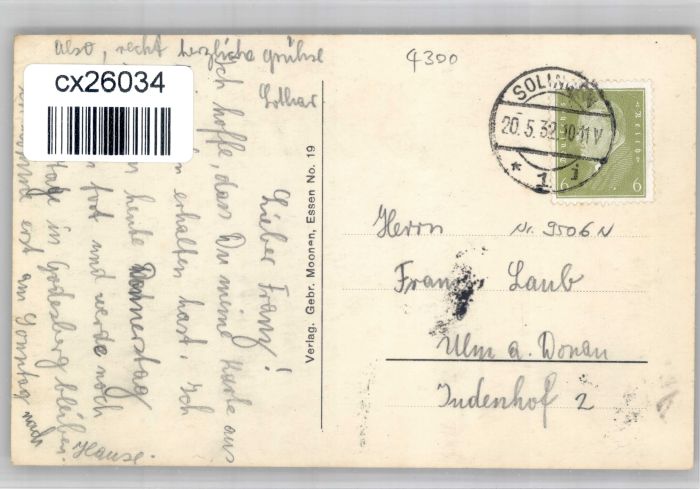 also, recht herzliche Grühse
Lothar
cx26034
Lieber Franz!
Ich hoffe, das Du meine Karte aus
erhalten hast. Ich
heute Donnerstag
fort und werde noch
Tag in Godesberg bleiben.
erst am Sonntag nach
Hause.
Verlag. Gebr. Moonen, Essen No. 19
4300
SOLINGEN
20.5.32.10-11V
* 1 i
6 6
Herrn Nr. 9506 N
Franz Laub
Ulm a. Donau
Judenhof 2